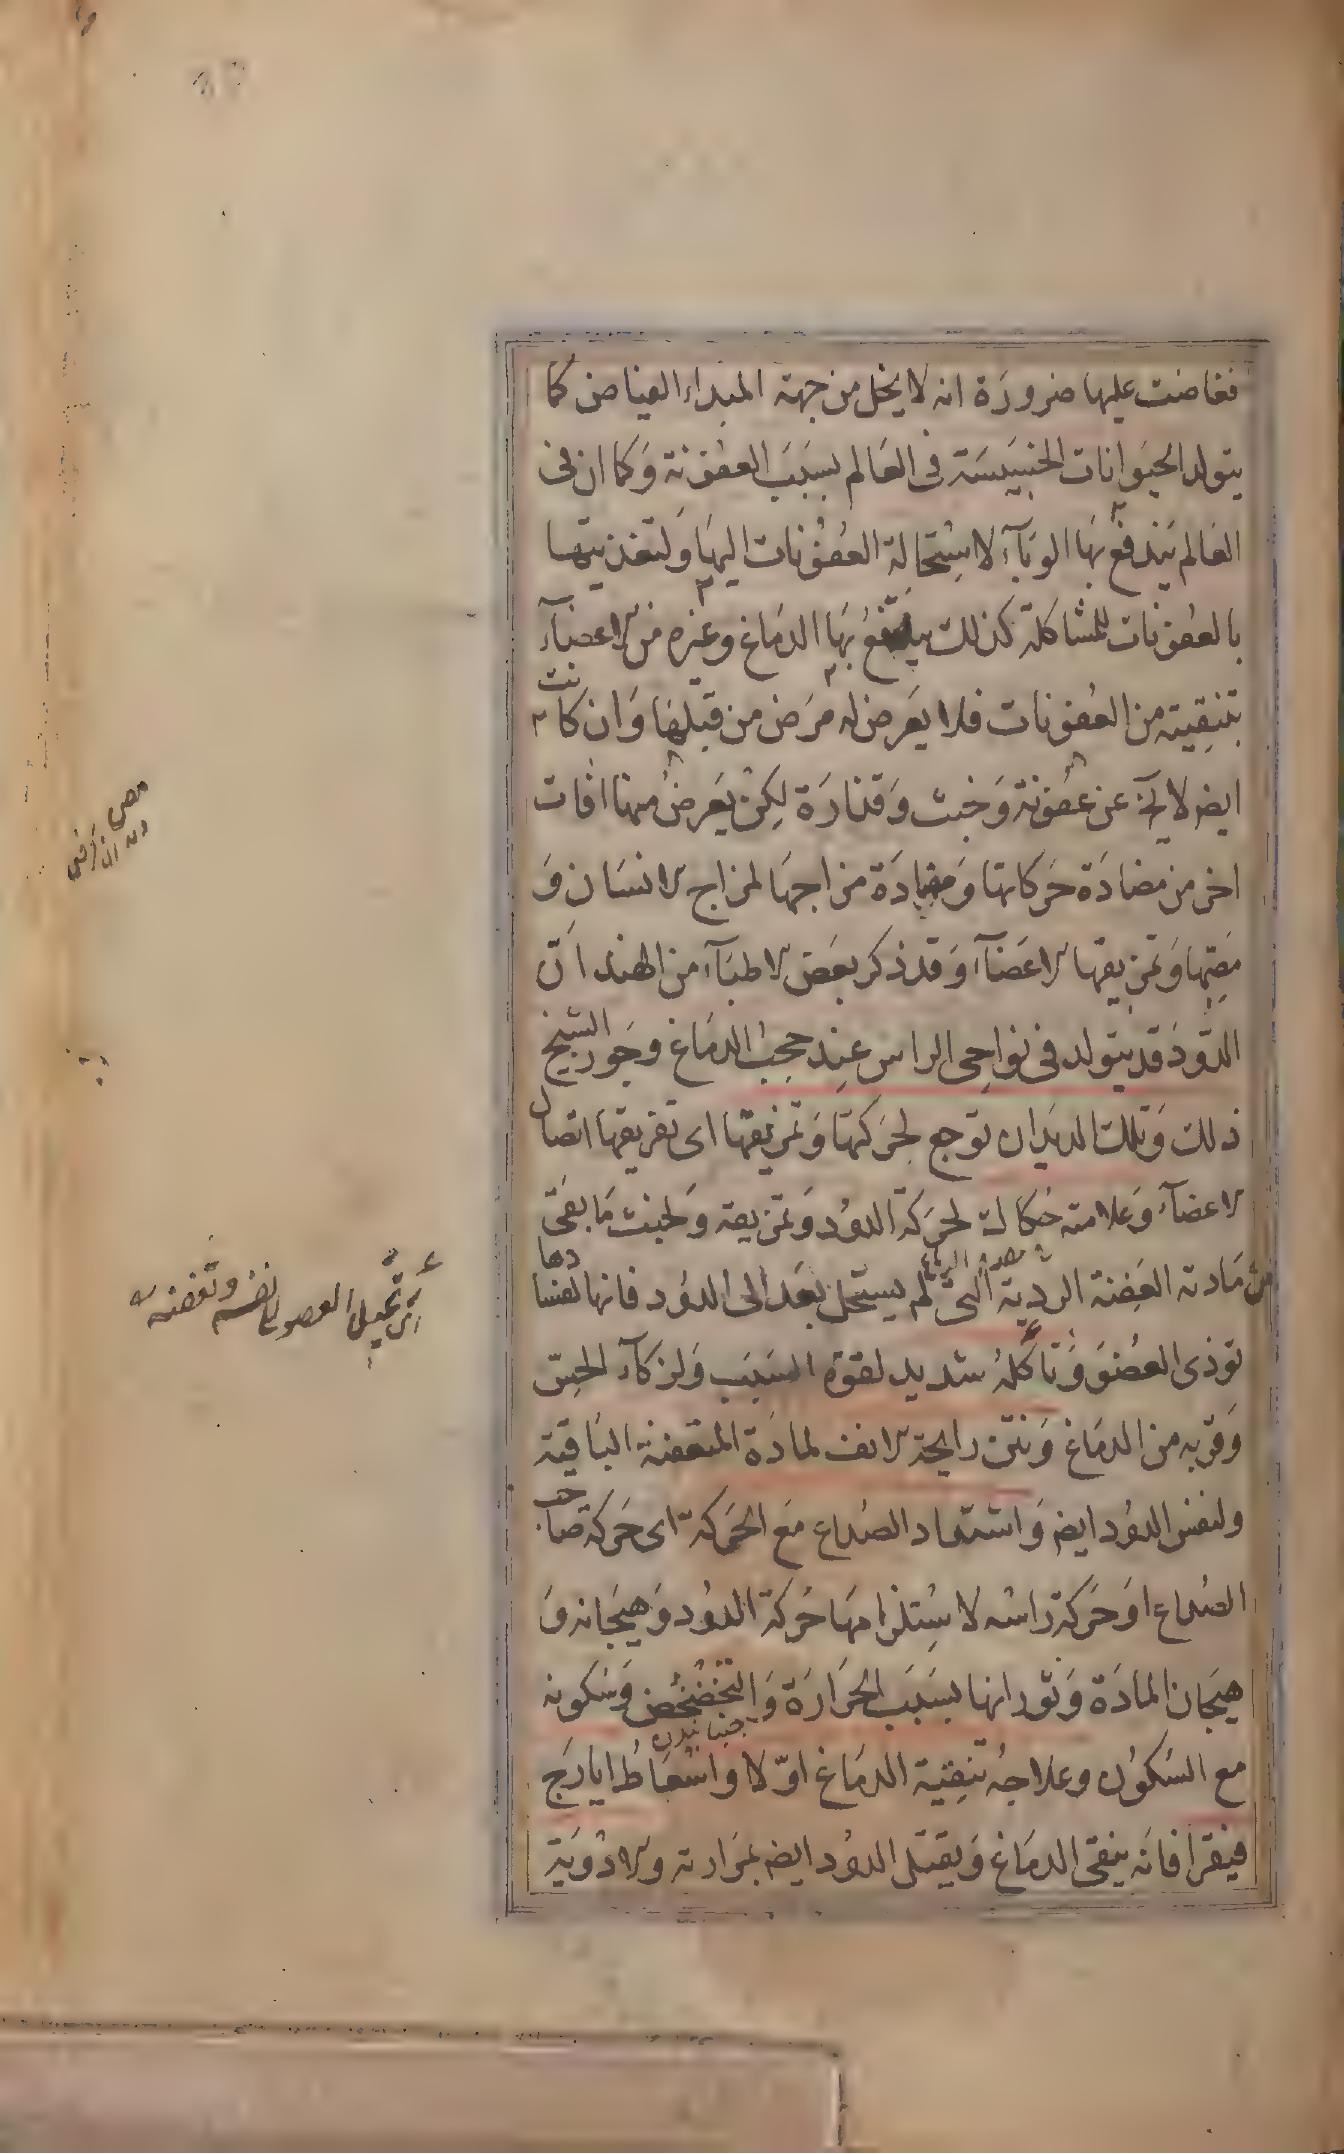 ففاضت عليها ضرورة انه لا بخل من جهة المبداء الفياض كما
يتولد الحيوانات الخسيسة فى العالم بسبب العفونة وكما ان فى
العالم يندفع بها الوبآء لاستحالة العفونات اليها ولتغذيتها
بالعفونات للمشاكلة كذلك ينتفع بها الدماغ وغيره من الاعضآء
بتنقيته من العفونات فلا يعرض له مرض من قبلها وان كانت
ايض لا يخ عن عفونة وخبث وقذارة لكن يعرض منها افات
اخر من مضادة حركاتها ومضادة مزاجها لمزاج الانسان و
مصها وتمزيقها الاعضآء وقد ذكر بعض الاطبآء من الهند ان
الدود قد يتولد فى نواحى الراس عند حجب الدماغ وجوز الشيخ
ذلك وتلك الديدان توجع لحركتها وتمزيقها اى تفريقها اتصال
الاعضآء وعلامته حكاك لحركة الدود وتمزيقه ولخبث ما بقى
من مادته العفنة الردية التى لم يستحل بعد الى الدود فانها لفسادها
توذى العضو وتاكله شديد لقوة السبب ولزكآء الحس
وقربه من الدماغ ونتن رايحة الانف لمادة المتعفنة الباقية
ولنفس الدود ايض واشتداد الصداع مع الحركة اى حركة صاحب
الصداع او حركة راسه لاستلزامها حركة الدود وهيجانه و
هيجان المادة وثورانها بسبب الحرارة والتخضخض وسكونه
جنبانيدن
مع السكون وعلاجه تنقية الدماغ اولا واسعاط ايارج
فيقرا فانه ينقى الدماغ ويقتل الدود ايض بمرارته والادوية